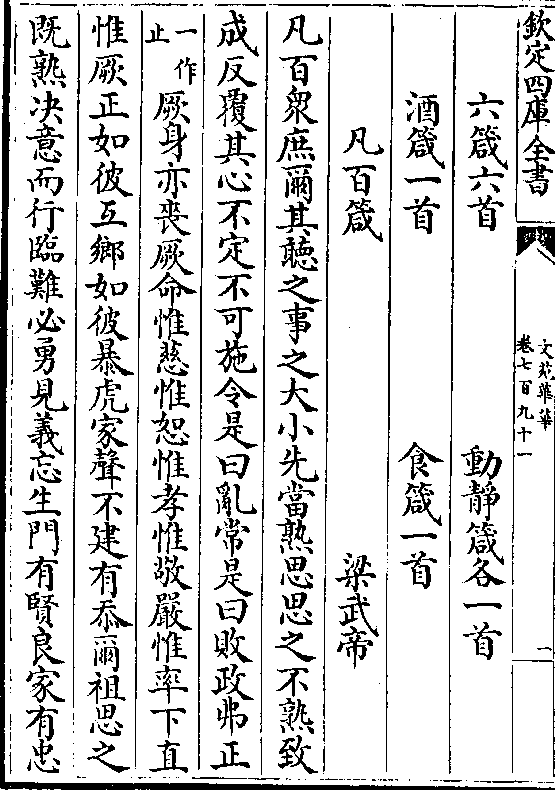 欽定四庫全書
文苑英華
卷七百九十一
一
六箴六首　動靜箴各一首
酒箴一首　食箴一首
凡百箴　梁武帝
凡百衆庶爾其聽之事之大小先當熟思思之不熟致
成反覆其心不定不可施令是曰亂常是曰敗政弗正
一作止厥身亦喪厥命惟慈惟恕惟孝惟敬嚴惟率下直
惟厥正如彼互鄉如彼暴虎家聲不建有忝爾祖思之
既熟决意而行臨難必勇見義忘生門有賢良家有忠